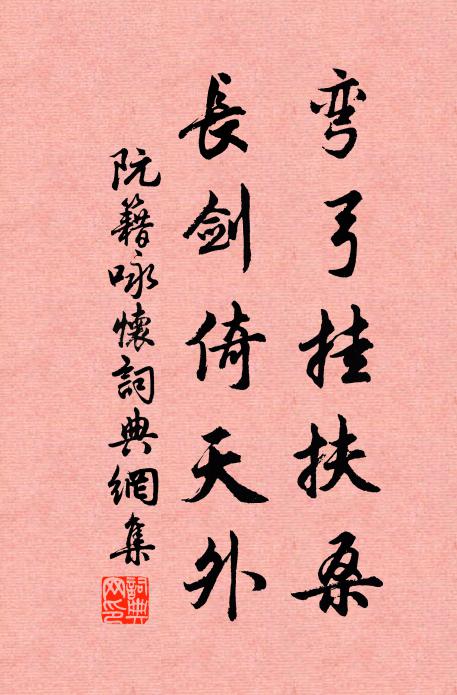 弯弓挂扶桑
長剑倚天外
阮籍咏懷詞典網集
詞典
网印